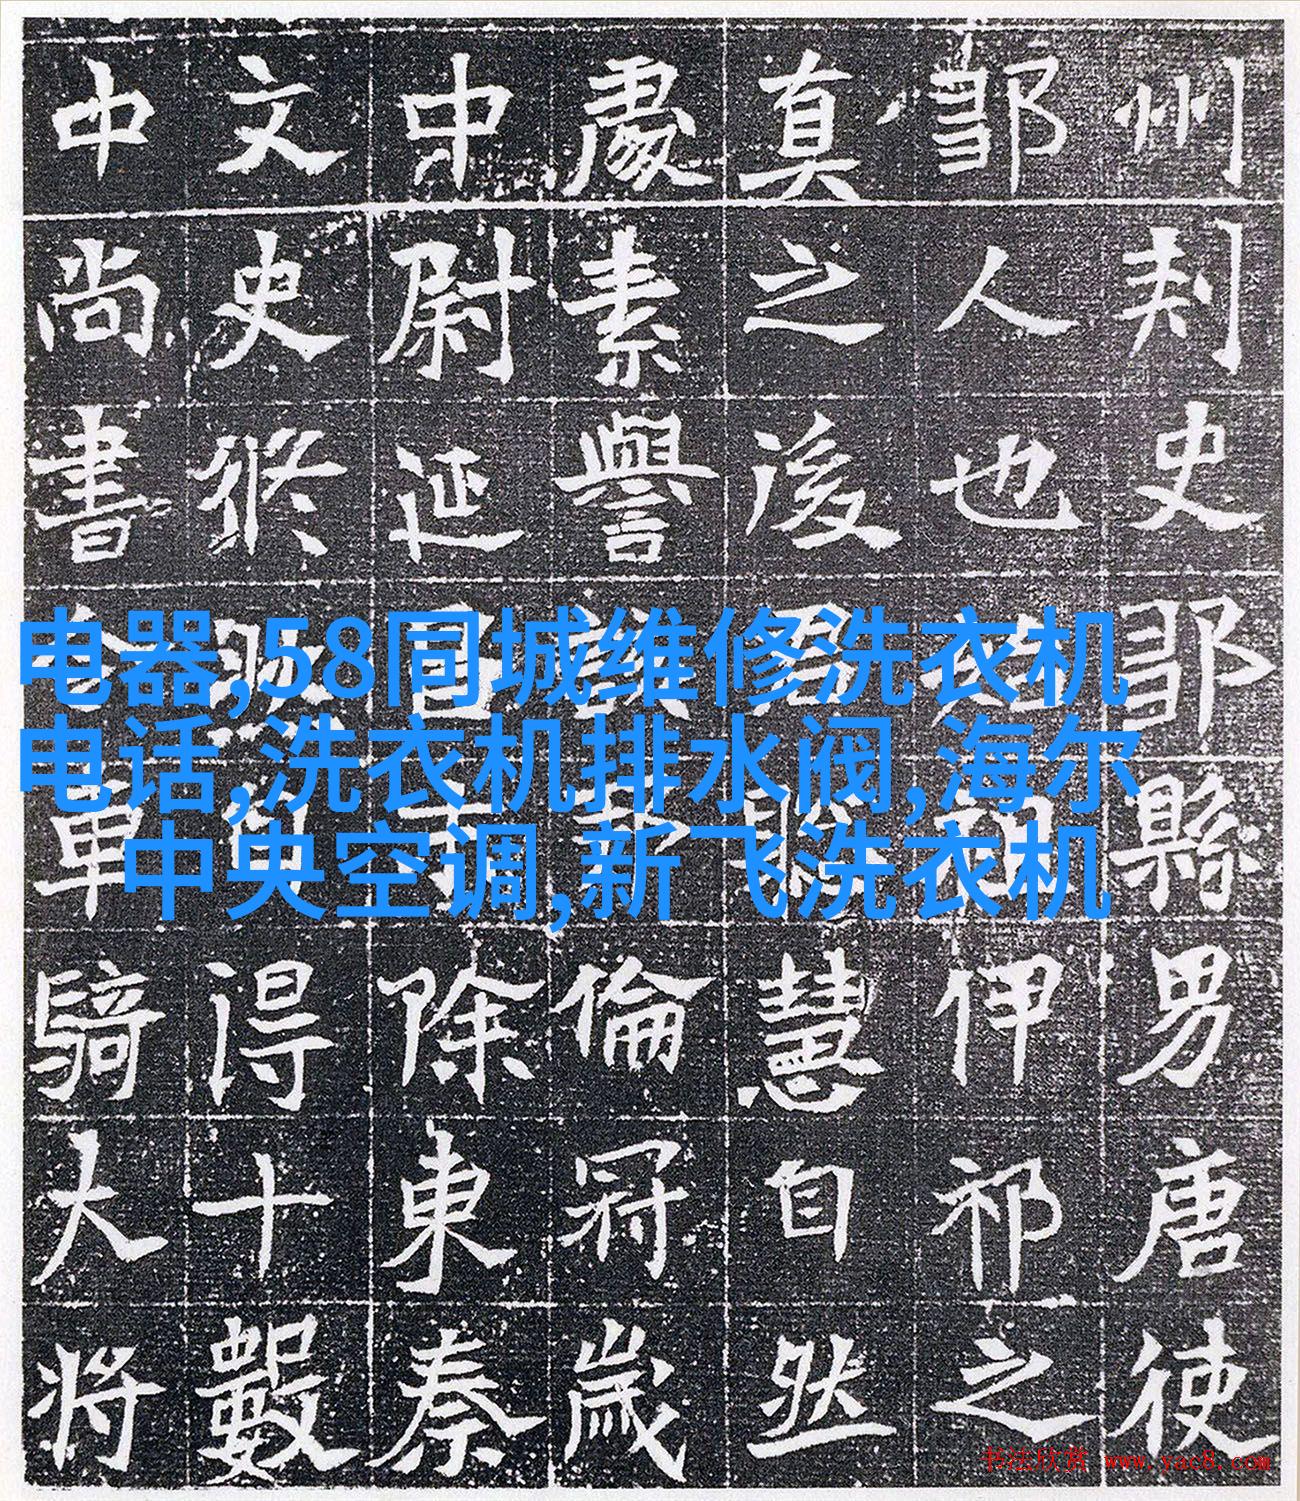 州刾史鄒縣男唐使
鄒人也伊祁之
真之後慧自然
處素譽倫冠歲
中尉延除東秦
文史修得十數
中尚書車騎大將
电器,58同城维修洗衣机
电话,洗衣机排水阀,海尔
中央空调,新飞洗衣机
书法欣赏 www.yac8.com